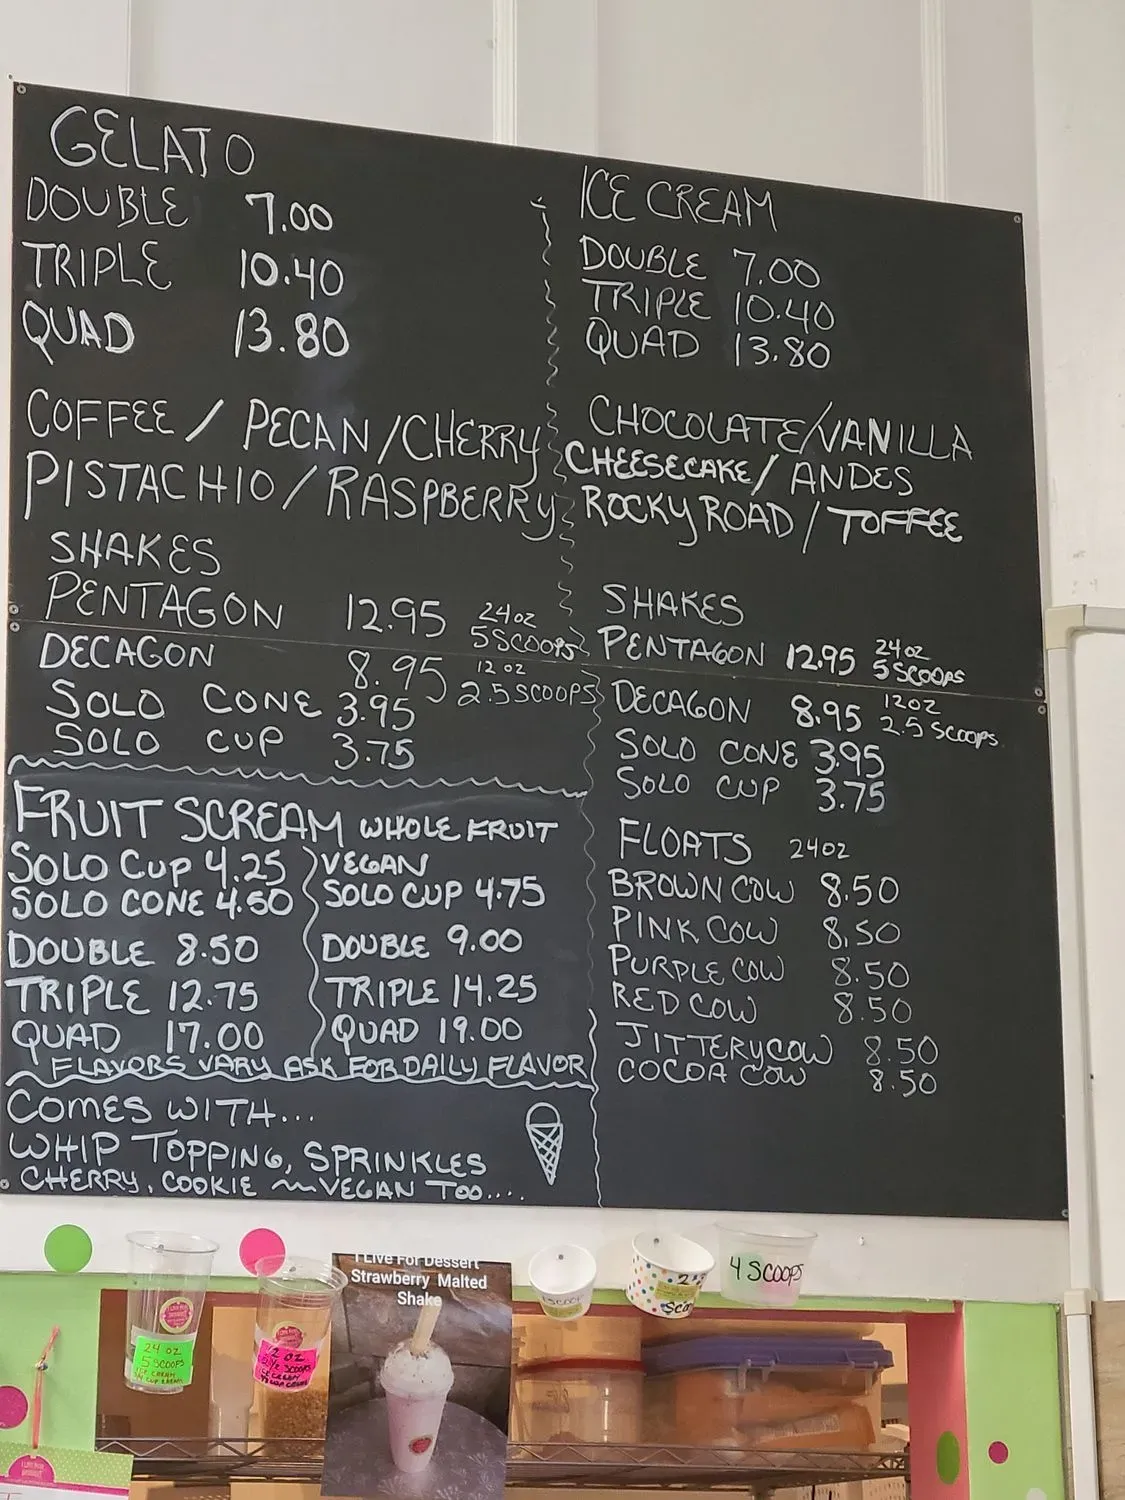 GELATO
DOUBLE 7.00
TRIPLE 10.40
QUAD 13.80
COFFEE / PECAN / CHERRY
PISTACHIO / RASPBERRY
SHAKES
PENTAGON 12.95 24oz 5 SCOOPS
DECAGON 8.95 12 oz 2.5 SCOOPS
SOLO CONE 3.95
SOLO CUP 3.75
ICE CREAM
DOUBLE 7.00
TRIPLE 10.40
QUAD 13.80
CHOCOLATE/VANILLA
CHEESECAKE/ ANDES
ROCKY ROAD / TOFFEE
SHAKES
PENTAGON 12.95 24oz 5 SCOOPS
DECAGON 8.95 12oz 2.5 SCOOPS
SOLO CONE 3.95
SOLO CUP 3.75
FLOATS 24oz
BROWN COW 8.50
PINK COW 8.50
PURPLE COW 8.50
RED COW 8.50
JITTERY COW 8.50
COCOA COW 8.50
FRUIT SCREAM WHOLE FRUIT
SOLO CUP 4.25
SOLO CONE 4.50
DOUBLE 8.50
TRIPLE 12.75
QUAD 17.00
VEGAN
SOLO CUP 4.75
DOUBLE 9.00
TRIPLE 14.25
QUAD 19.00
FLAVORS VARY ASK FOR DAILY FLAVOR
COMES WITH...
WHIP TOPPING, SPRINKLES
CHERRY, COOKIE ~ VEGAN TOO....
I Live For Dessert
Strawberry Malted
Shake
4 SCOOPS
24 OZ
5 SCOOPS
ICE CREAM